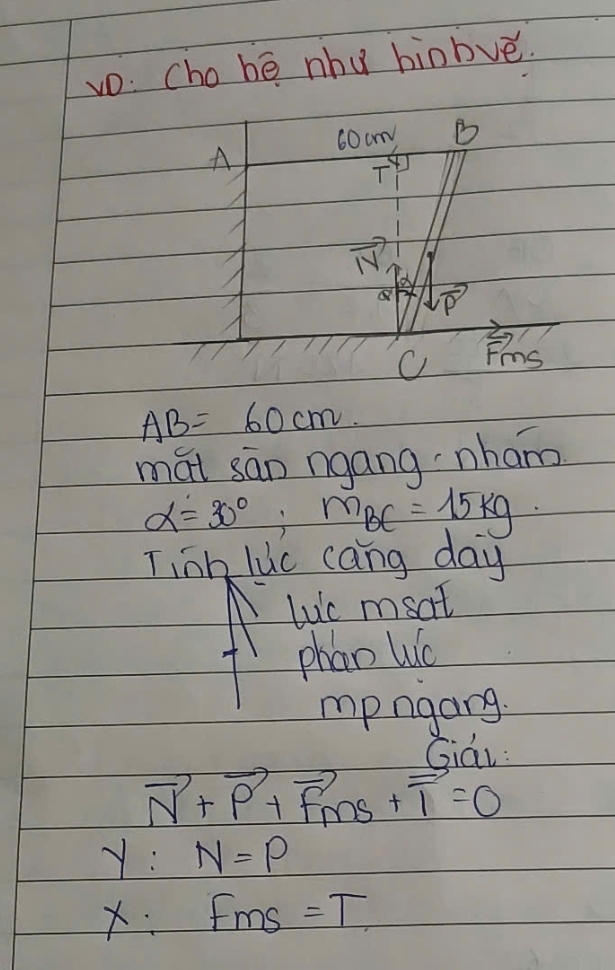 VD: Cho hệ như hình vẽ.
60cm
B
A
T
N
α
α
P
C
Fms
AB = 60cm.
mặt sàn ngang nhám
α = 30° ; mBC = 15kg.
Tính lực căng dây
lực msát
phản lực
mp ngang.
Giải:
N + P + Fms + T = 0
Y : N = P
X : Fms = T